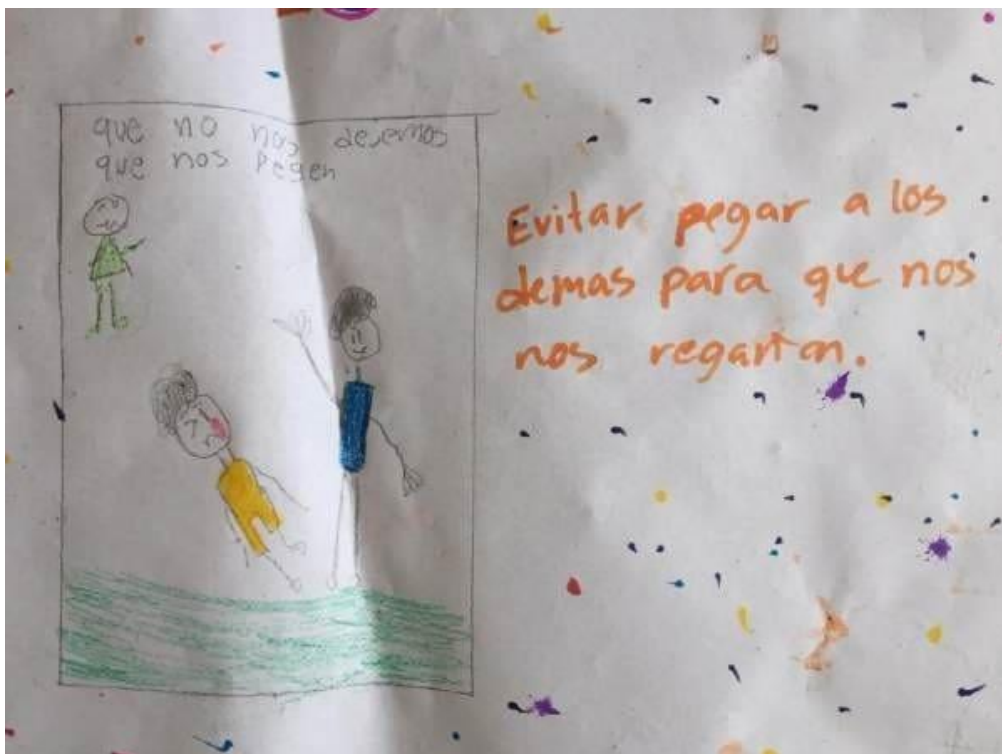 que no nos dejemos
que nos pegen
Evitar pegar a los
demas para que nos
nos regañan.